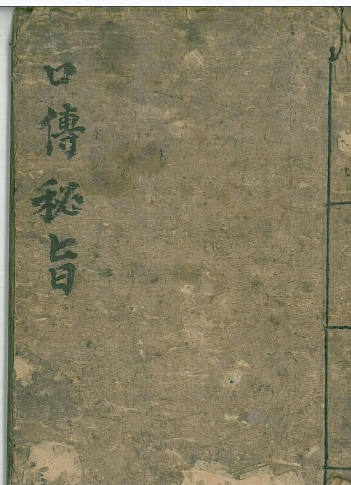 口傳秘旨